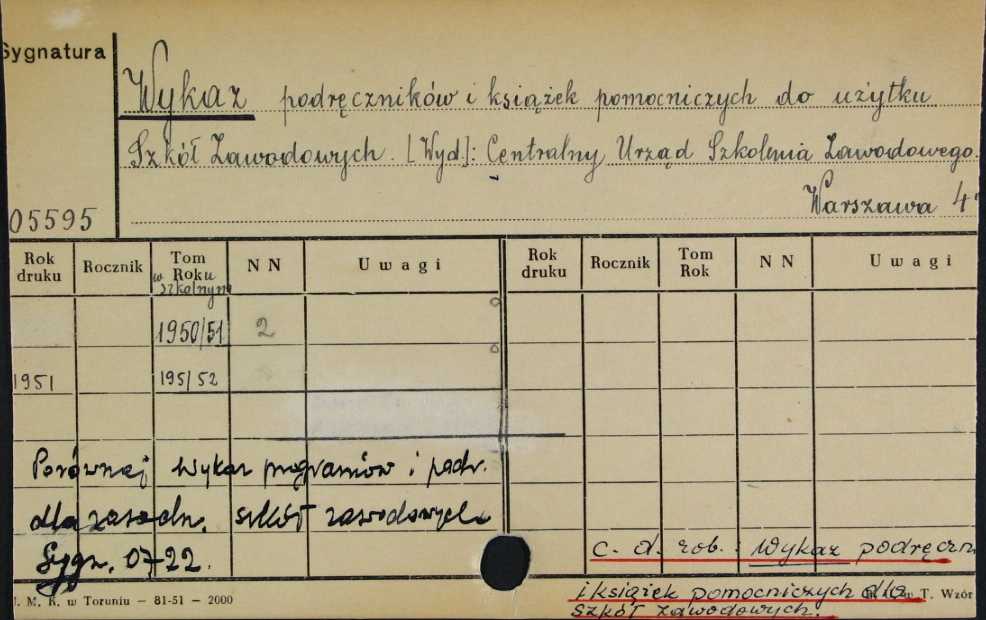 Sygnatura
Wykaz podręczników i książek pomocniczych do użytku
Szkół Zawodowych. [Wyd.]: Centralny Urząd Szkolenia Zawodowego.
Warszawa 4°
05595
Rok druku Rocznik Tom w Roku szkolnym N N Uwagi Rok druku Rocznik Tom Rok N N Uwagi
1950/51 2
1951 195/52
Porównaj Wykaz programów i podr.
dla zasadn. szkół zawodowych
Sygn. 07-22.
c. d. zob.: Wykaz podręczn.
i książek pomocniczych dla
szkół zawodowych.
J. M. K. w Toruniu — 81-51 — 2000
w T. Wzór